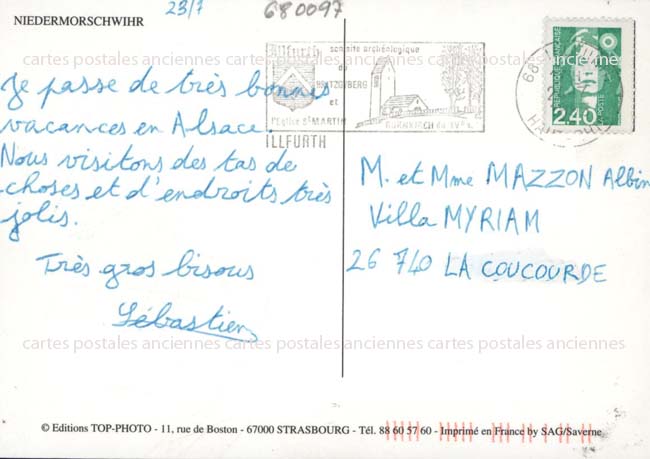 NIEDERMORSCHWIHR
23/7
680097
Illfurth
son site archéologique
du
BRITZGYBERG
et
l'Eglise St MARTIN
BURNKIRCH du IVe s.
ILLFURTH
68
HAUT-RHIN
RÉPUBLIQUE FRANÇAISE
LA POSTE
2,40
cartes postales anciennes cartes postales anciennes
Je passe de très bonnes
vacances en Alsace.
Nous visitons des tas de
choses et d'endroits très
jolis.
Très gros bisous
Sébastien
M. et Mme MAZZON Albin
Villa MYRIAM
26 740 LA COUCOURDE
cartes postales anciennes cartes postales anciennes
© Editions TOP-PHOTO - 11, rue de Boston - 67000 STRASBOURG - Tél. 88 60 57 60 - Imprimé en France by SAG/Saverne